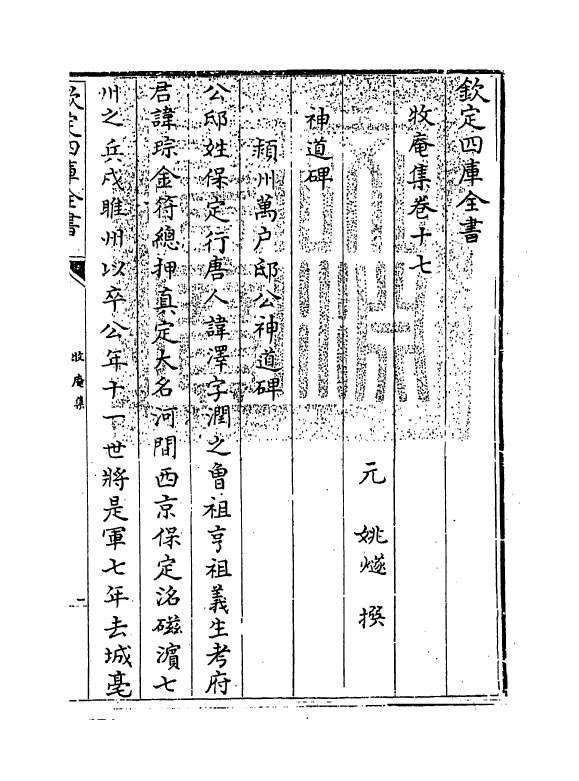 欽定四庫全書
牧庵集卷十七
元 姚燧 撰
神道碑
潁州萬户邸公神道碑
公邸姓保定行唐人諱澤字潤之曾祖亨祖義生考府
君諱琮金符總押真定大名河間西京保定洺磁濵七
州之兵戍睢州以卒公年十一世將是軍七年去城亳
欽定四庫全書
牧庵集
一